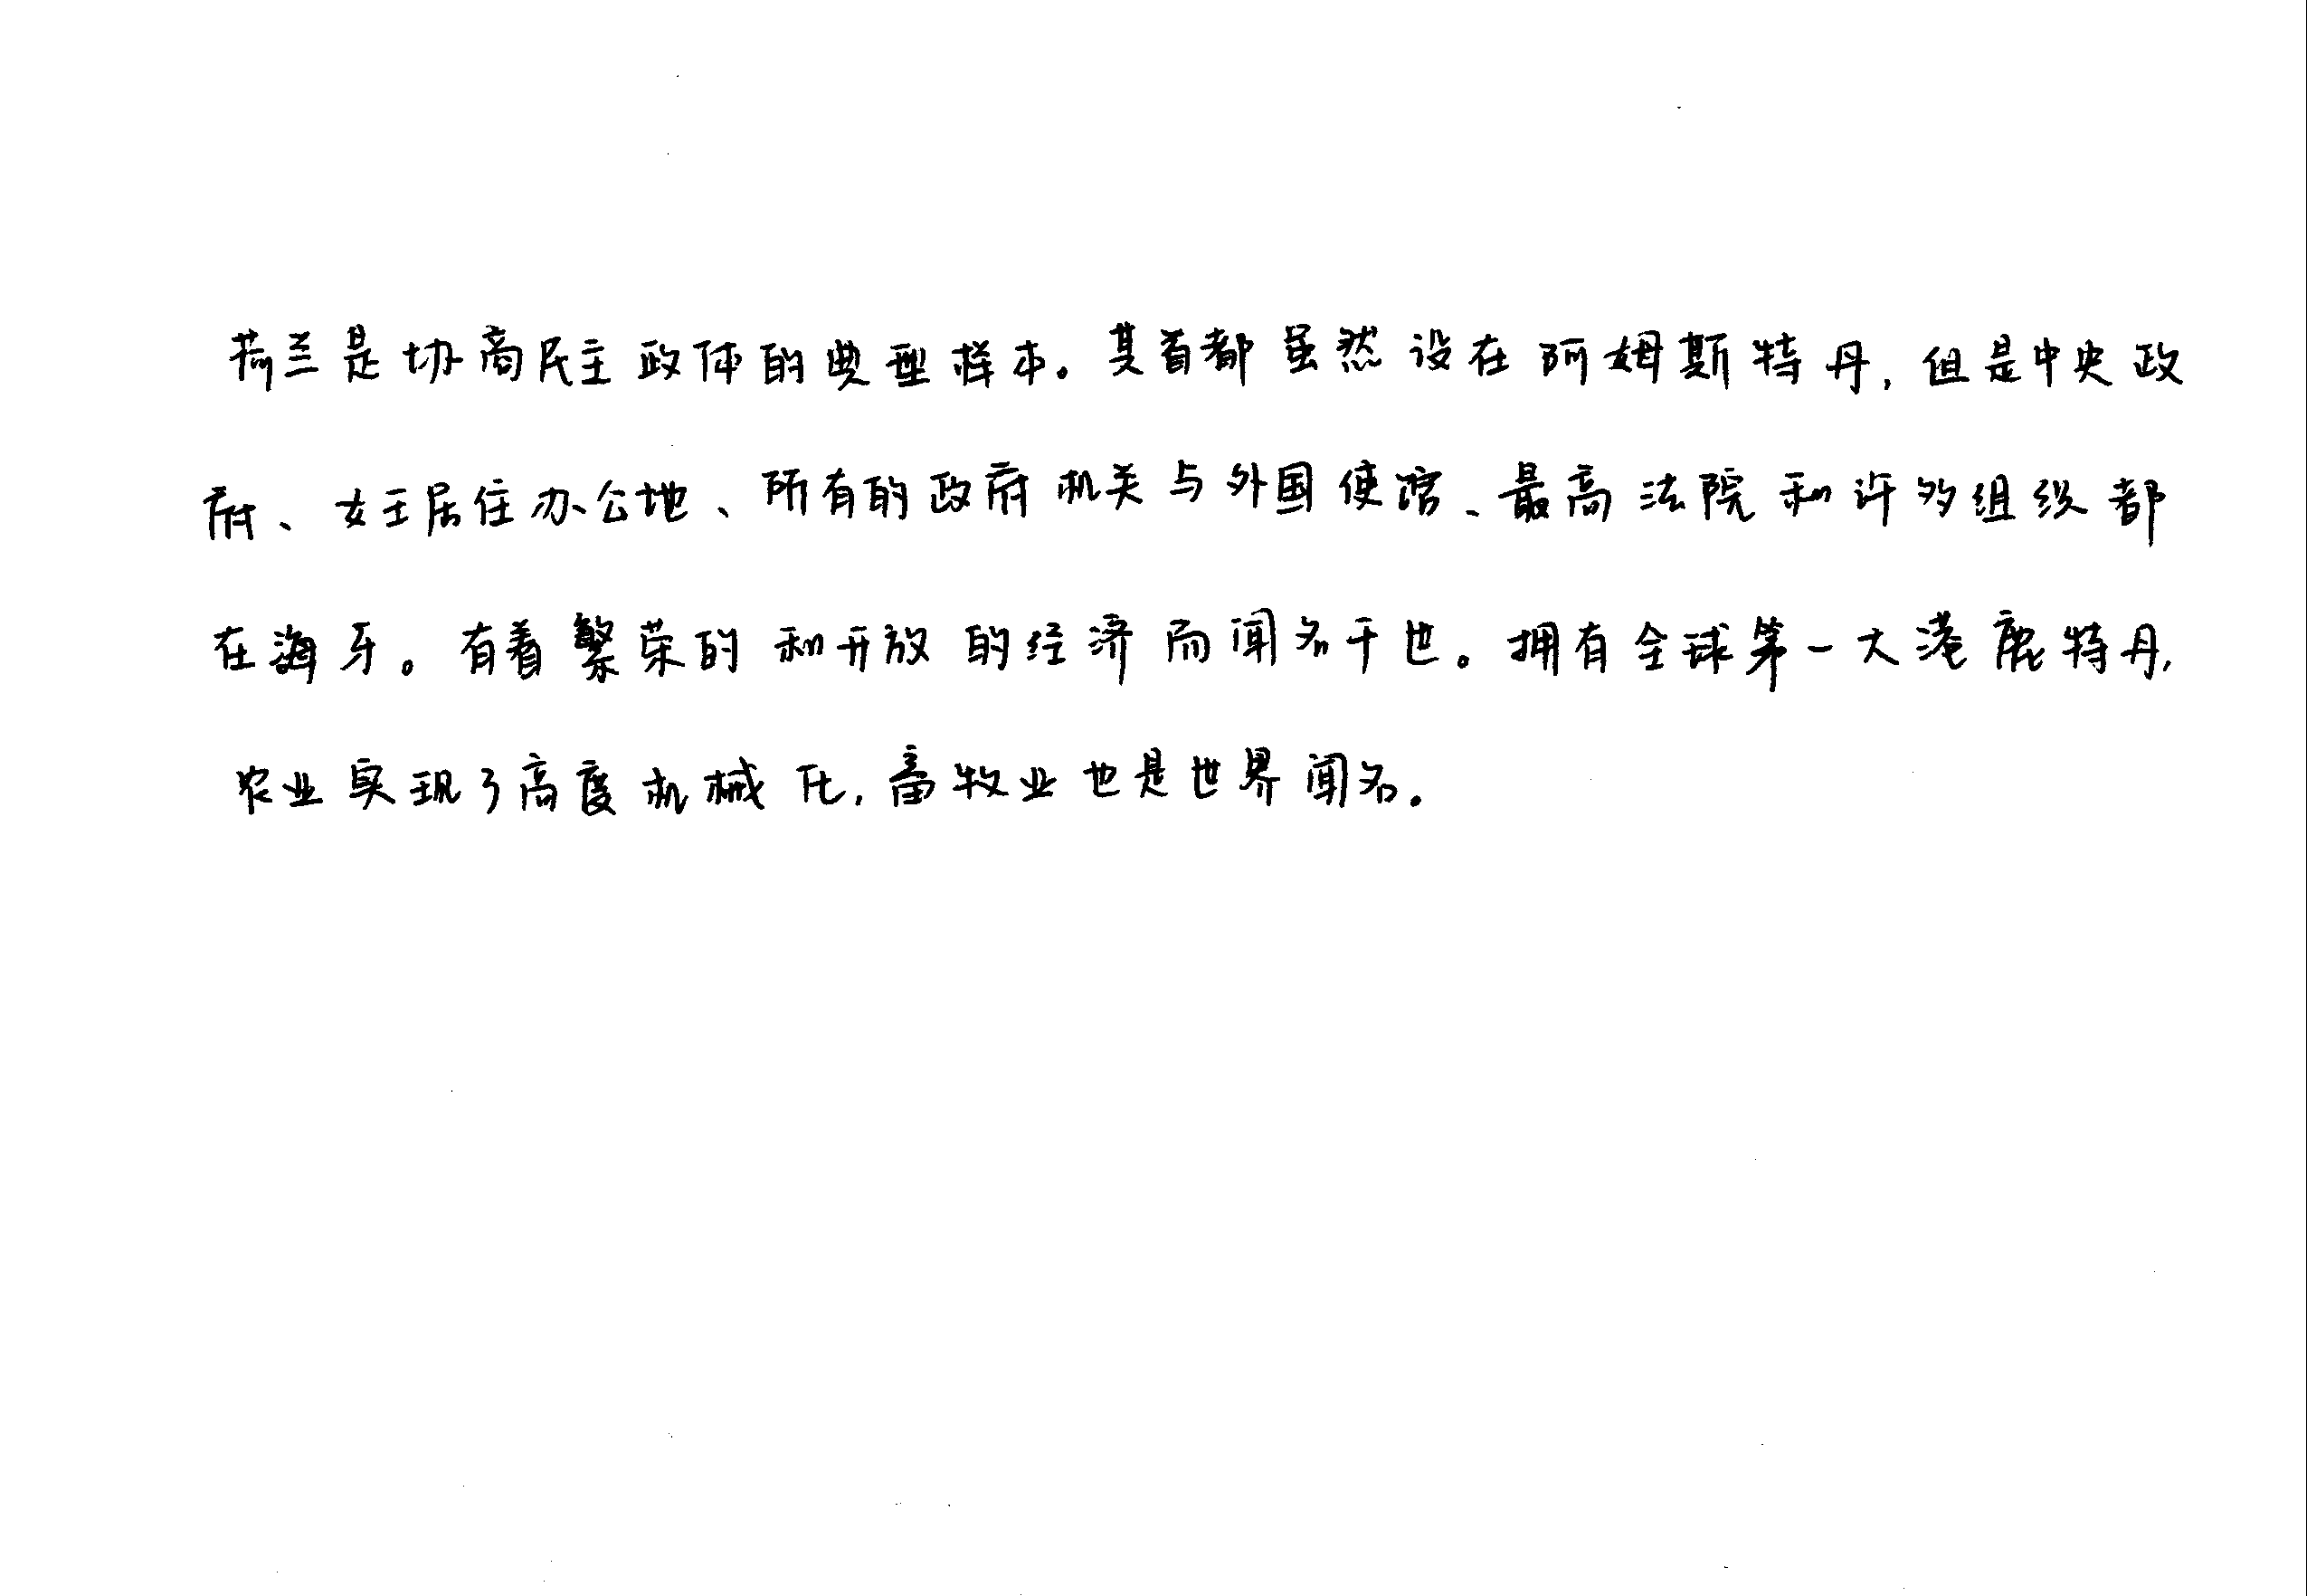 荷兰是协商民主政体的典型样本。其首都虽然设在阿姆斯特丹,但是中央政
府、女王居住办公地、所有的政府机关与外国使馆、最高法院和许多组织都
在海牙。有着繁荣的和开放的经济而闻名于世。拥有全球第一大港鹿特丹,
农业实现了高度机械化,畜牧业也是世界闻名。